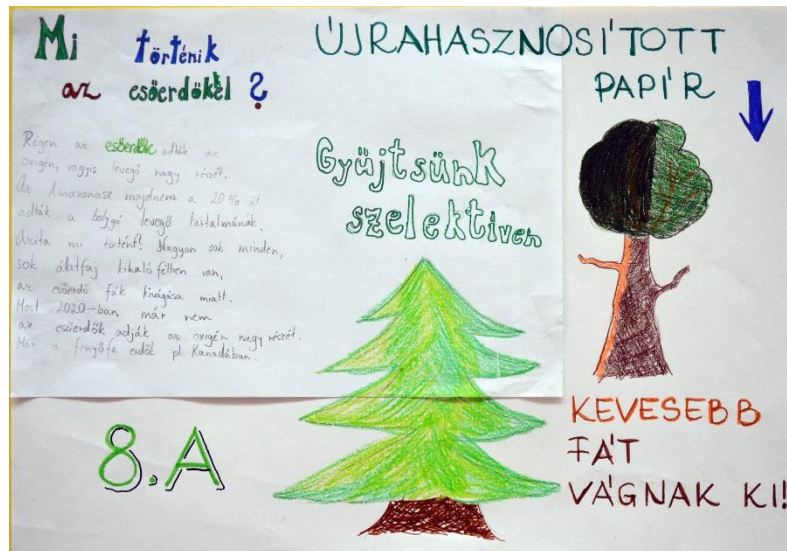 Mi történik
az esőerdőkkel ?
Régen az esőerdők adták az
oxigén, vagyis levegő nagy részét.
Az Amazonasz majdnem a 20%-át
adták a bolygó levegő tartalmának.
Azóta mi történt? Nagyon sok minden,
sok állatfaj kihaló félben van,
az esőerdő fák kivágása miatt.
Most 2020-ban már nem
az esőerdők adják az oxigén nagy részét.
Már a fenyőfa erdők pl Kanadában.
8.A
ÚJRAHASZNOSÍTOTT
PAPÍR
Gyűjtsünk
szelektíven
KEVESEBB
FÁT
VÁGNAK KI!